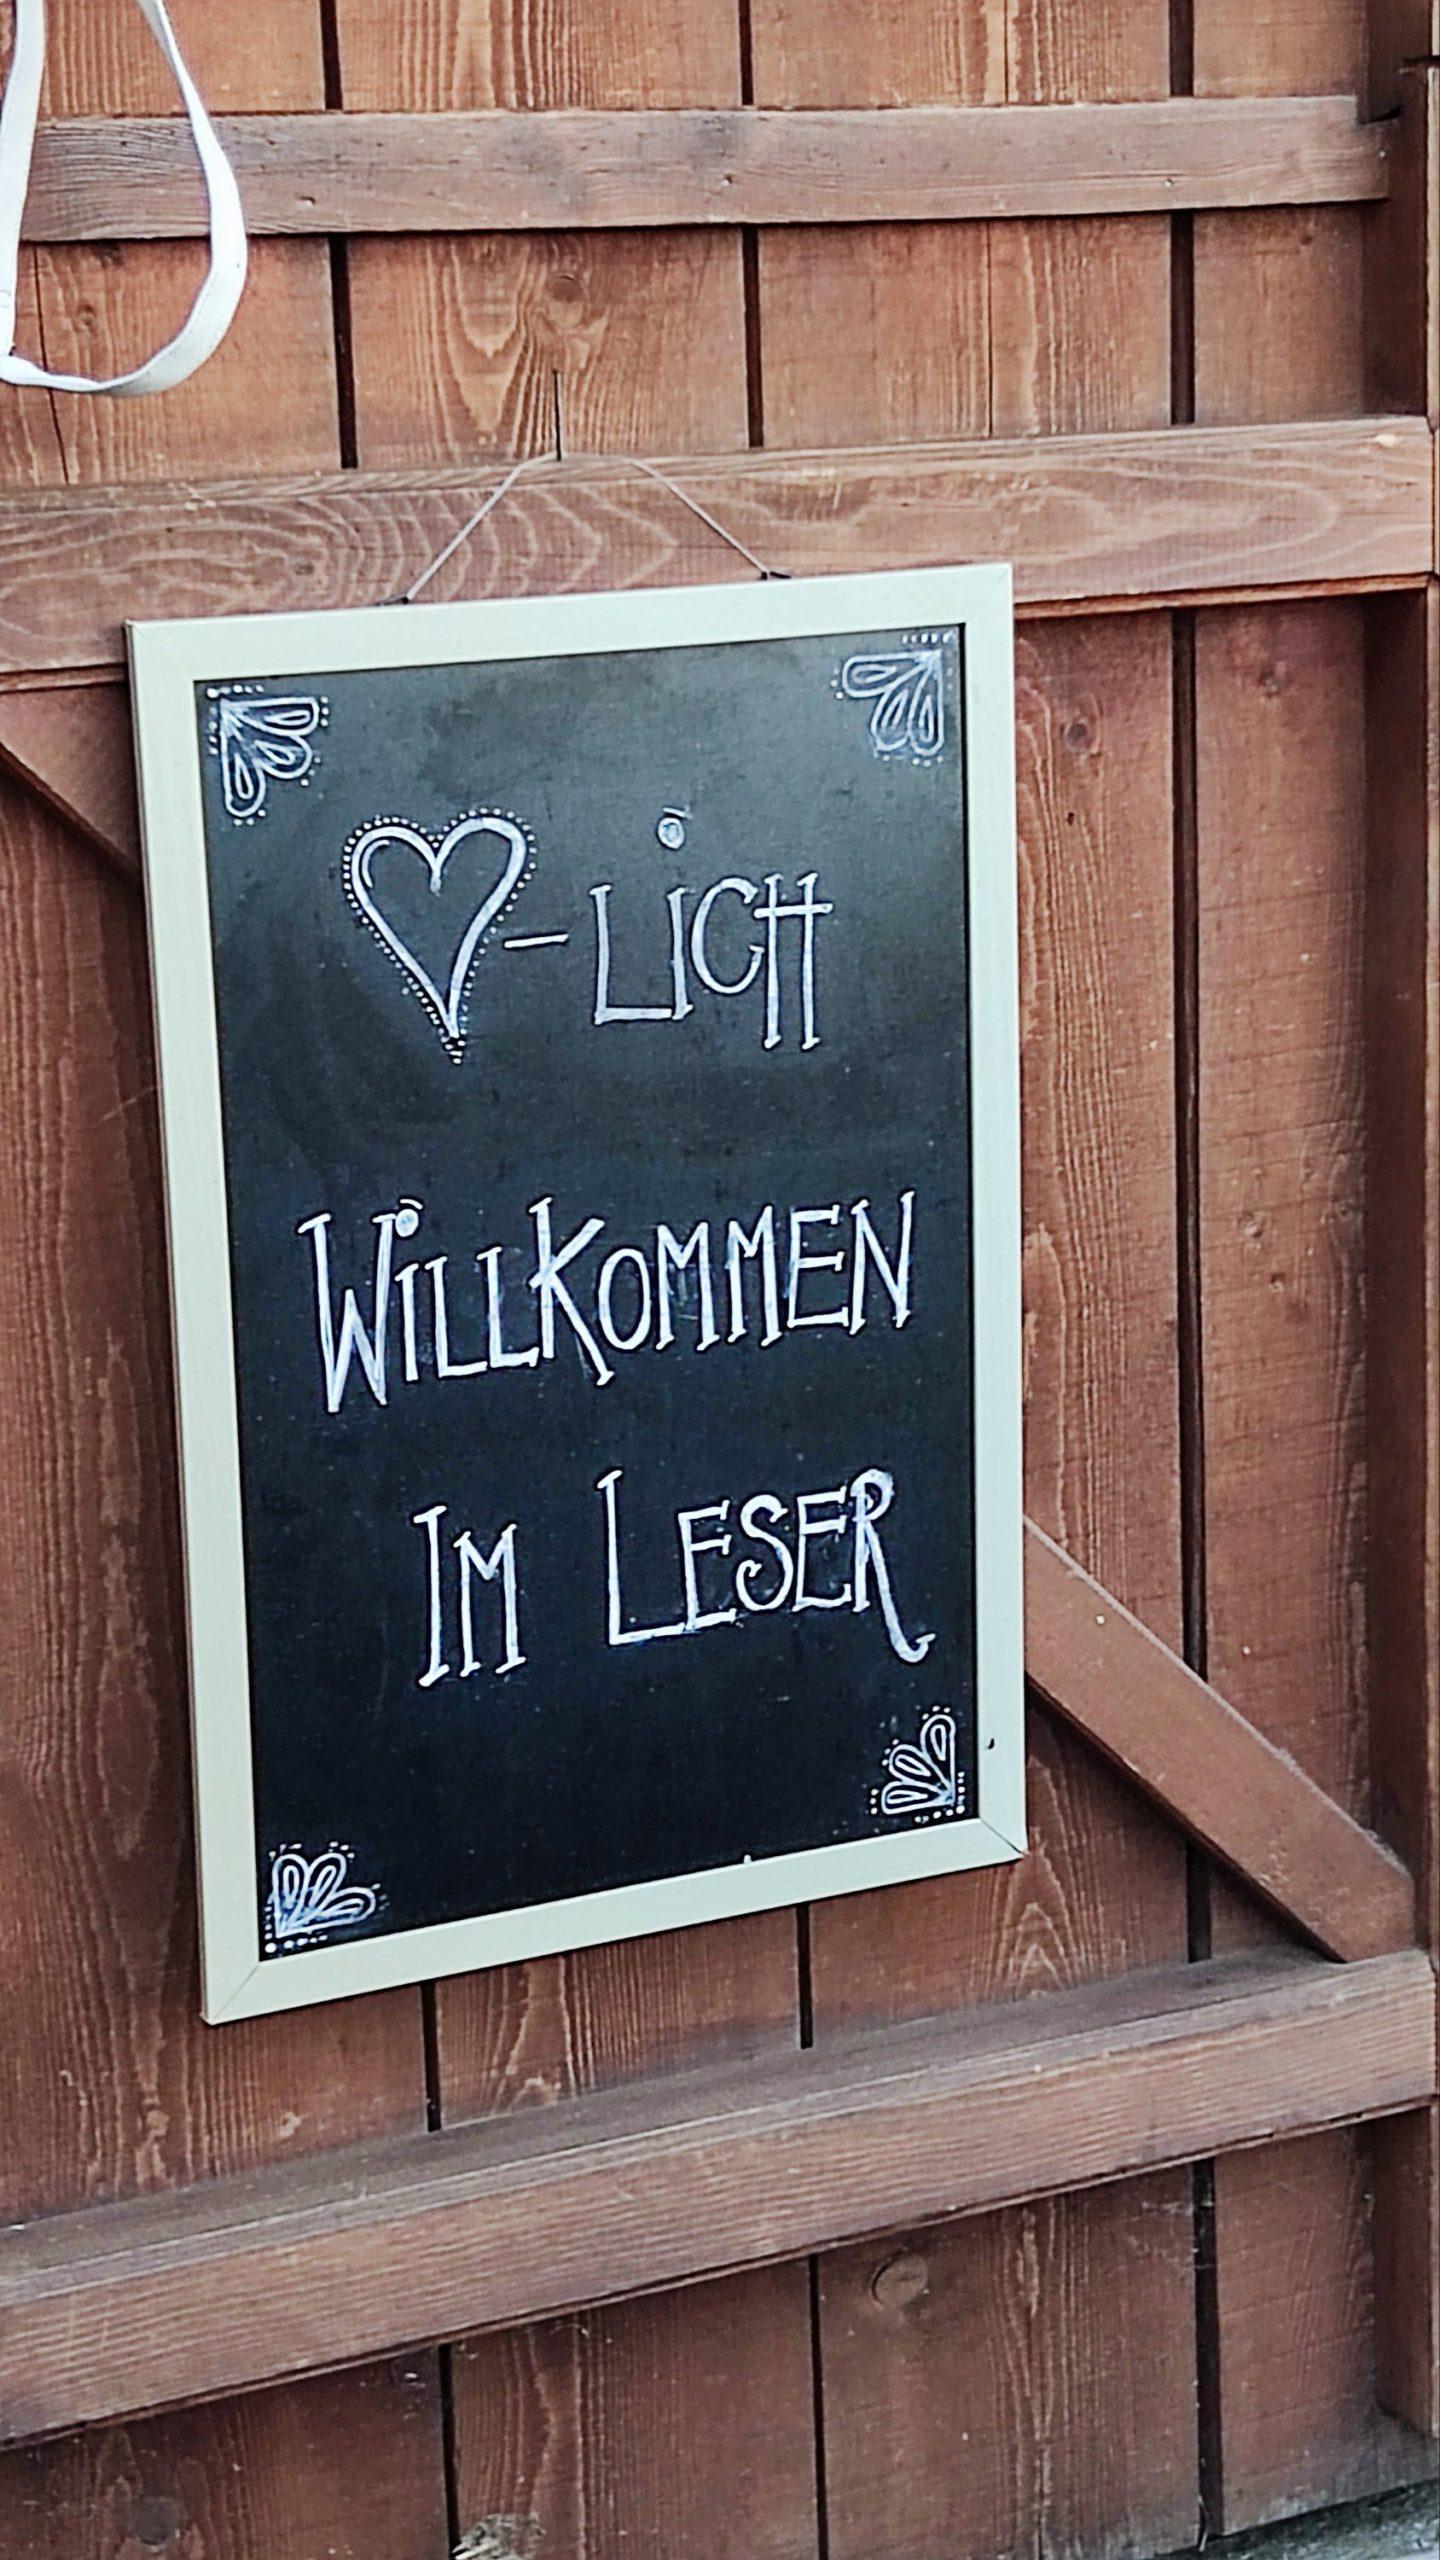 ♡-LiCH
WiLLKOMMEN
IM LESER